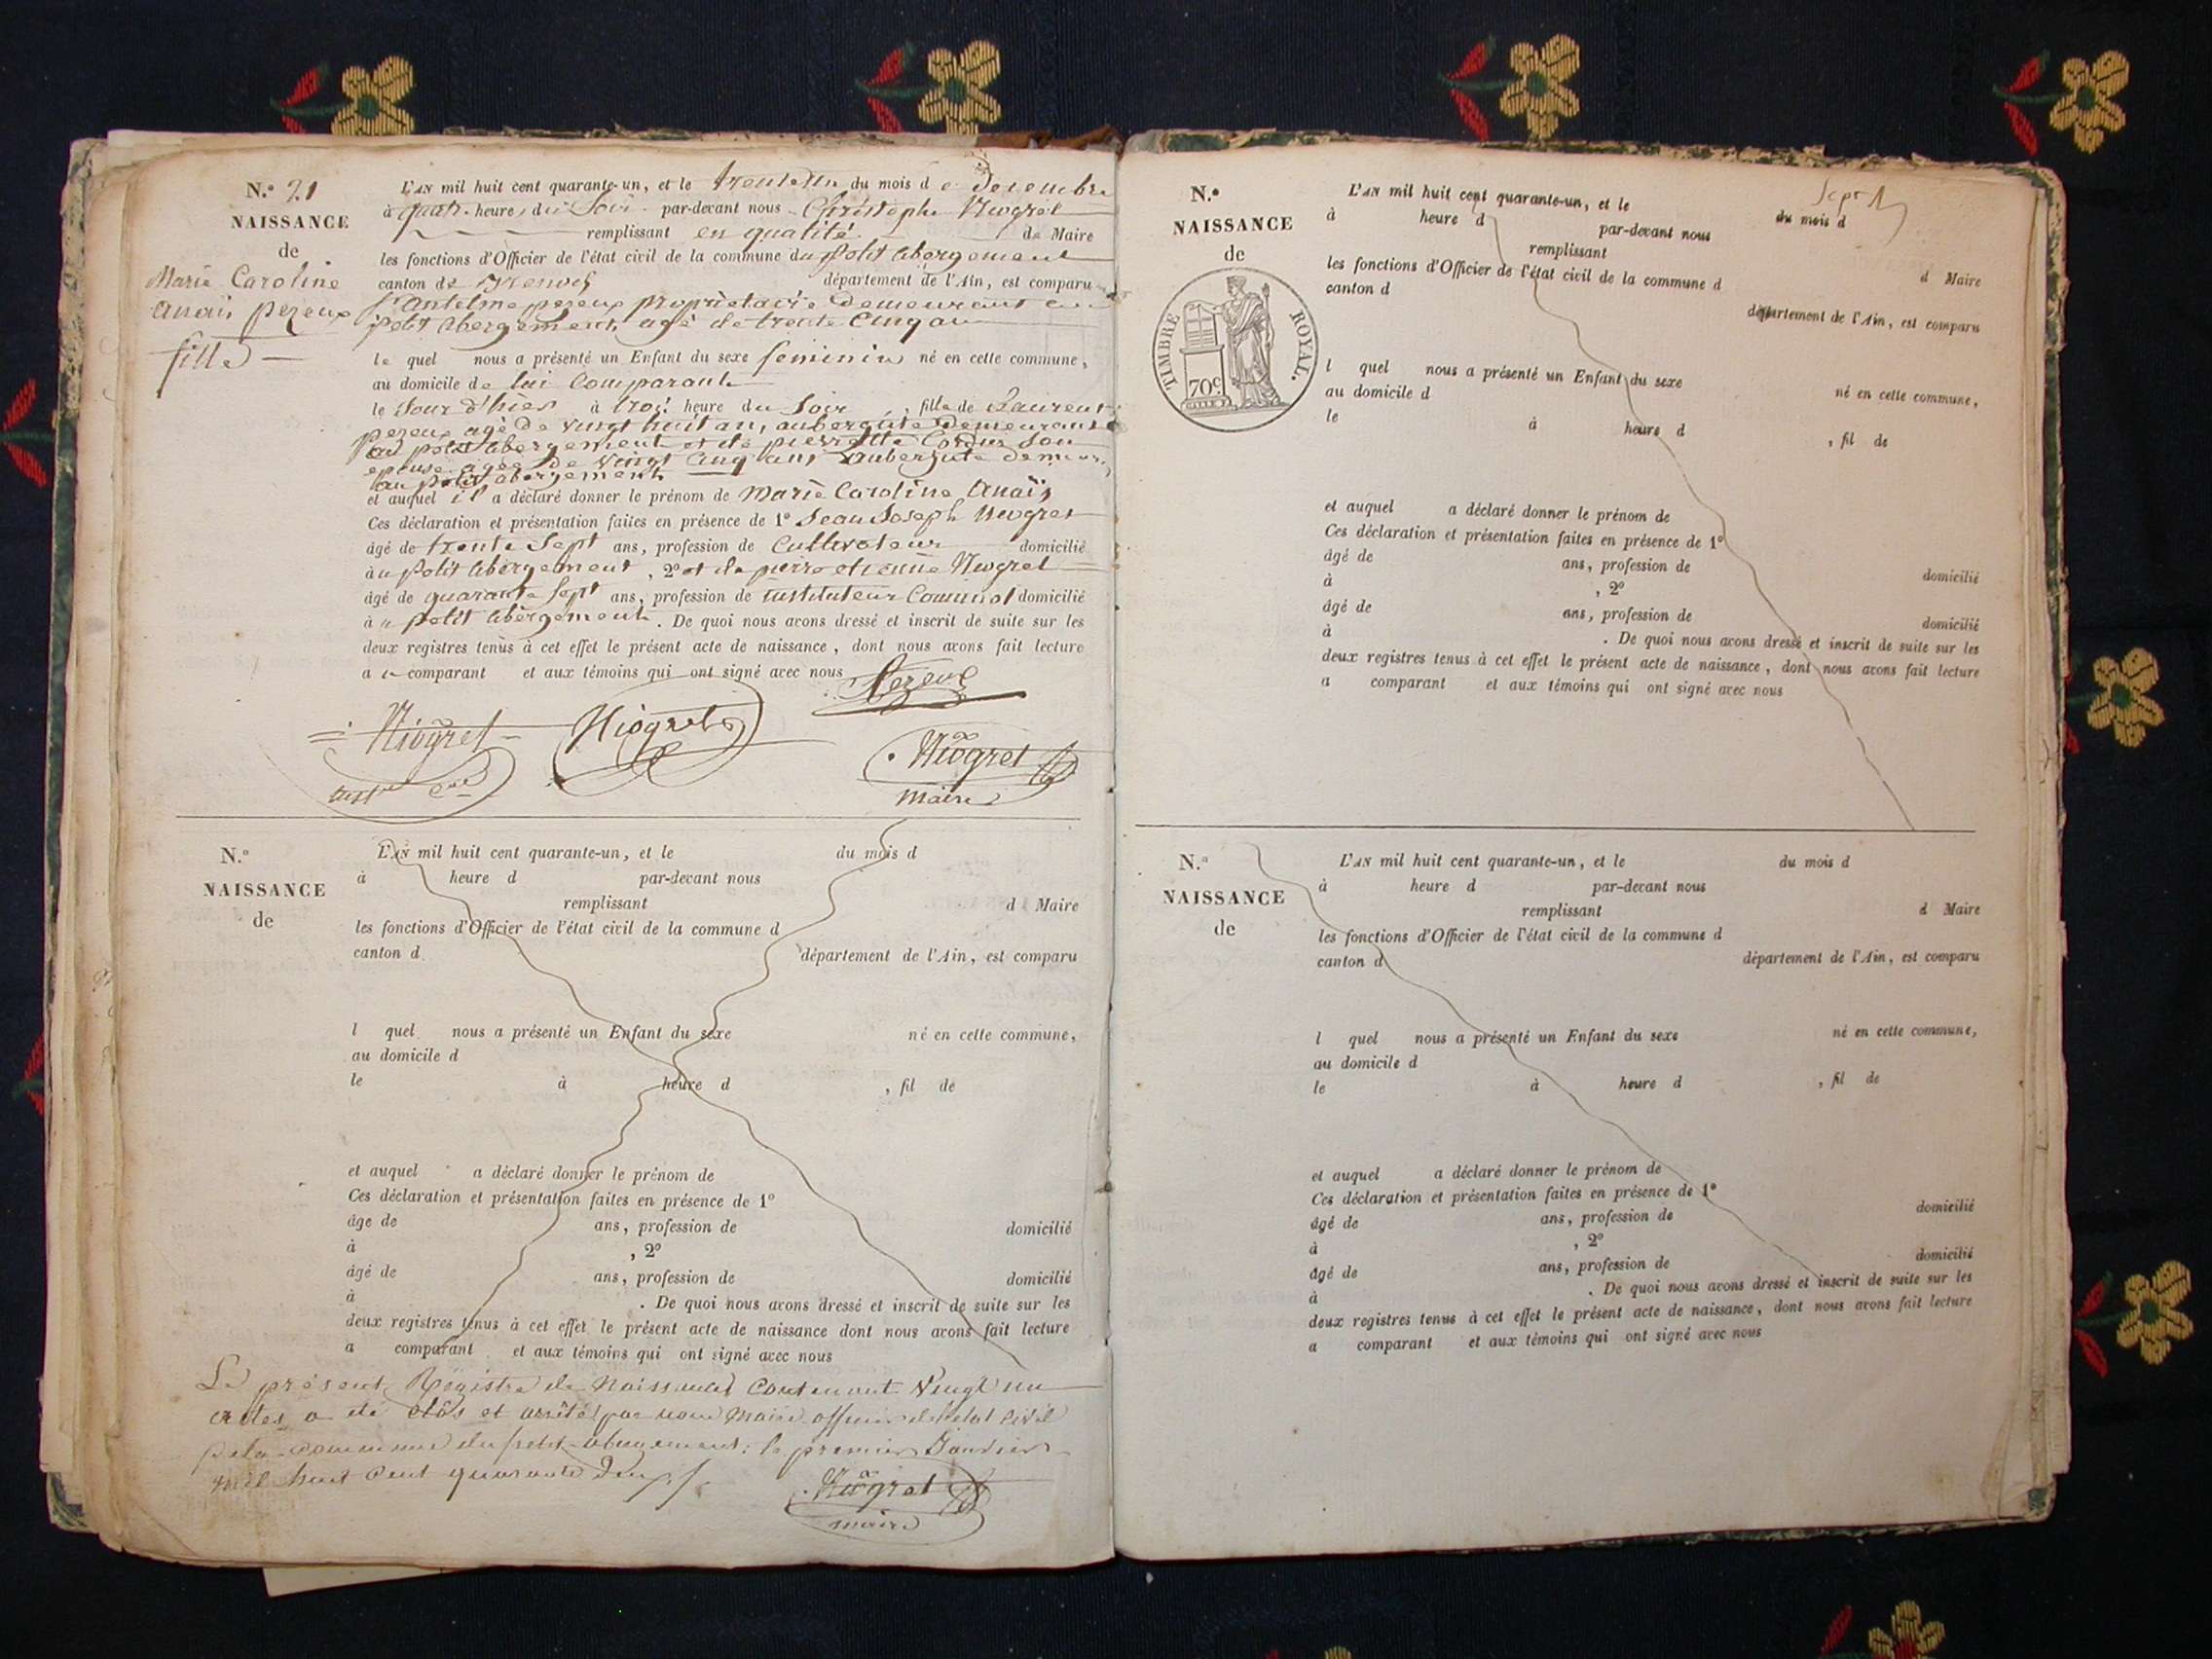 N.º 21
NAISSANCE
de
Marie Caroline
anaïs pezeux
fille
L'AN mil huit cent quarante-un, et le trente un du mois d e Decembre
à quatre heure, du Soir par-devant nous Christophe Niogret
remplissant en qualité de Maire
les fonctions d'Officier de l'état civil de la commune du petit abergement
canton de Brenod département de l'Ain, est comparu
Antelme pezeux propriétaire demeurant au
petit abergement, agé de trente cinq an
le quel nous a présenté un Enfant du sexe feminin né en cette commune,
au domicile de lui Comparant
le Jour d'hier à trois heure du Soir , fille de Laurent
pezeux agé de vingt huit an, aubergiste demeurant
au petit abergement et de pierrette son
epouse agée de vingt cinq ans aubergiste
au petit abergement
et auquel il a déclaré donner le prénom de Marie Caroline Anaïs
Ces déclaration et présentation faites en présence de 1º Jean Joseph Niogret
âgé de trente Sept ans, profession de Cultivateur domicilié
à u petit abergement , 2º et de pierre etienne Niogret
âgé de quarante Sept ans, profession de instituteur domicilié
à u petit abergement . De quoi nous avons dressé et inscrit de suite sur les
deux registres tenus à cet effet le présent acte de naissance, dont nous avons fait lecture
a u comparant et aux témoins qui ont signé avec nous
Pezeux
Niogret Niogret
Niogret
maire
N.º
NAISSANCE
de
L'AN mil huit cent quarante-un, et le du mois d
à heure d par-devant nous
remplissant d Maire
les fonctions d'Officier de l'état civil de la commune d
canton d département de l'Ain, est comparu
l quel nous a présenté un Enfant du sexe né en cette commune,
au domicile d
le à heure d , fil de
et auquel a déclaré donner le prénom de
Ces déclaration et présentation faites en présence de 1º
âge de ans, profession de domicilié
à , 2º
âgé de ans, profession de domicilié
à . De quoi nous avons dressé et inscrit de suite sur les
deux registres tenus à cet effet le présent acte de naissance dont nous avons fait lecture
a comparant et aux témoins qui ont signé avec nous
Le présent Régistre de Naissances Contenant Vingt un
actes a été clôs et arrêté par nous Maire officier de l'état civil
de la commune du petit abergement le premier Janvier
mil huit cent quarante deux
Niogret
maire
Sept
N.º
NAISSANCE
de
TIMBRE ROYAL.
70c
L'AN mil huit cent quarante-un, et le du mois d
à heure d par-devant nous
remplissant d Maire
les fonctions d'Officier de l'état civil de la commune d
canton d département de l'Ain, est comparu
l quel nous a présenté un Enfant du sexe né en cette commune,
au domicile d
le à heure d , fil de
et auquel a déclaré donner le prénom de
Ces déclaration et présentation faites en présence de 1º
âgé de ans, profession de domicilié
à , 2º
âgé de ans, profession de domicilié
à . De quoi nous avons dressé et inscrit de suite sur les
deux registres tenus à cet effet le présent acte de naissance, dont nous avons fait lecture
a comparant et aux témoins qui ont signé avec nous
N.º
NAISSANCE
de
L'AN mil huit cent quarante-un, et le du mois d
à heure d par-devant nous
remplissant d Maire
les fonctions d'Officier de l'état civil de la commune d
canton d département de l'Ain, est comparu
l quel nous a présenté un Enfant du sexe né en cette commune,
au domicile d
le à heure d , fil de
et auquel a déclaré donner le prénom de
Ces déclaration et présentation faites en présence de 1º
âgé de ans, profession de domicilié
à , 2º
âgé de ans, profession de domicilié
à . De quoi nous avons dressé et inscrit de suite sur les
deux registres tenus à cet effet le présent acte de naissance, dont nous avons fait lecture
a comparant et aux témoins qui ont signé avec nous